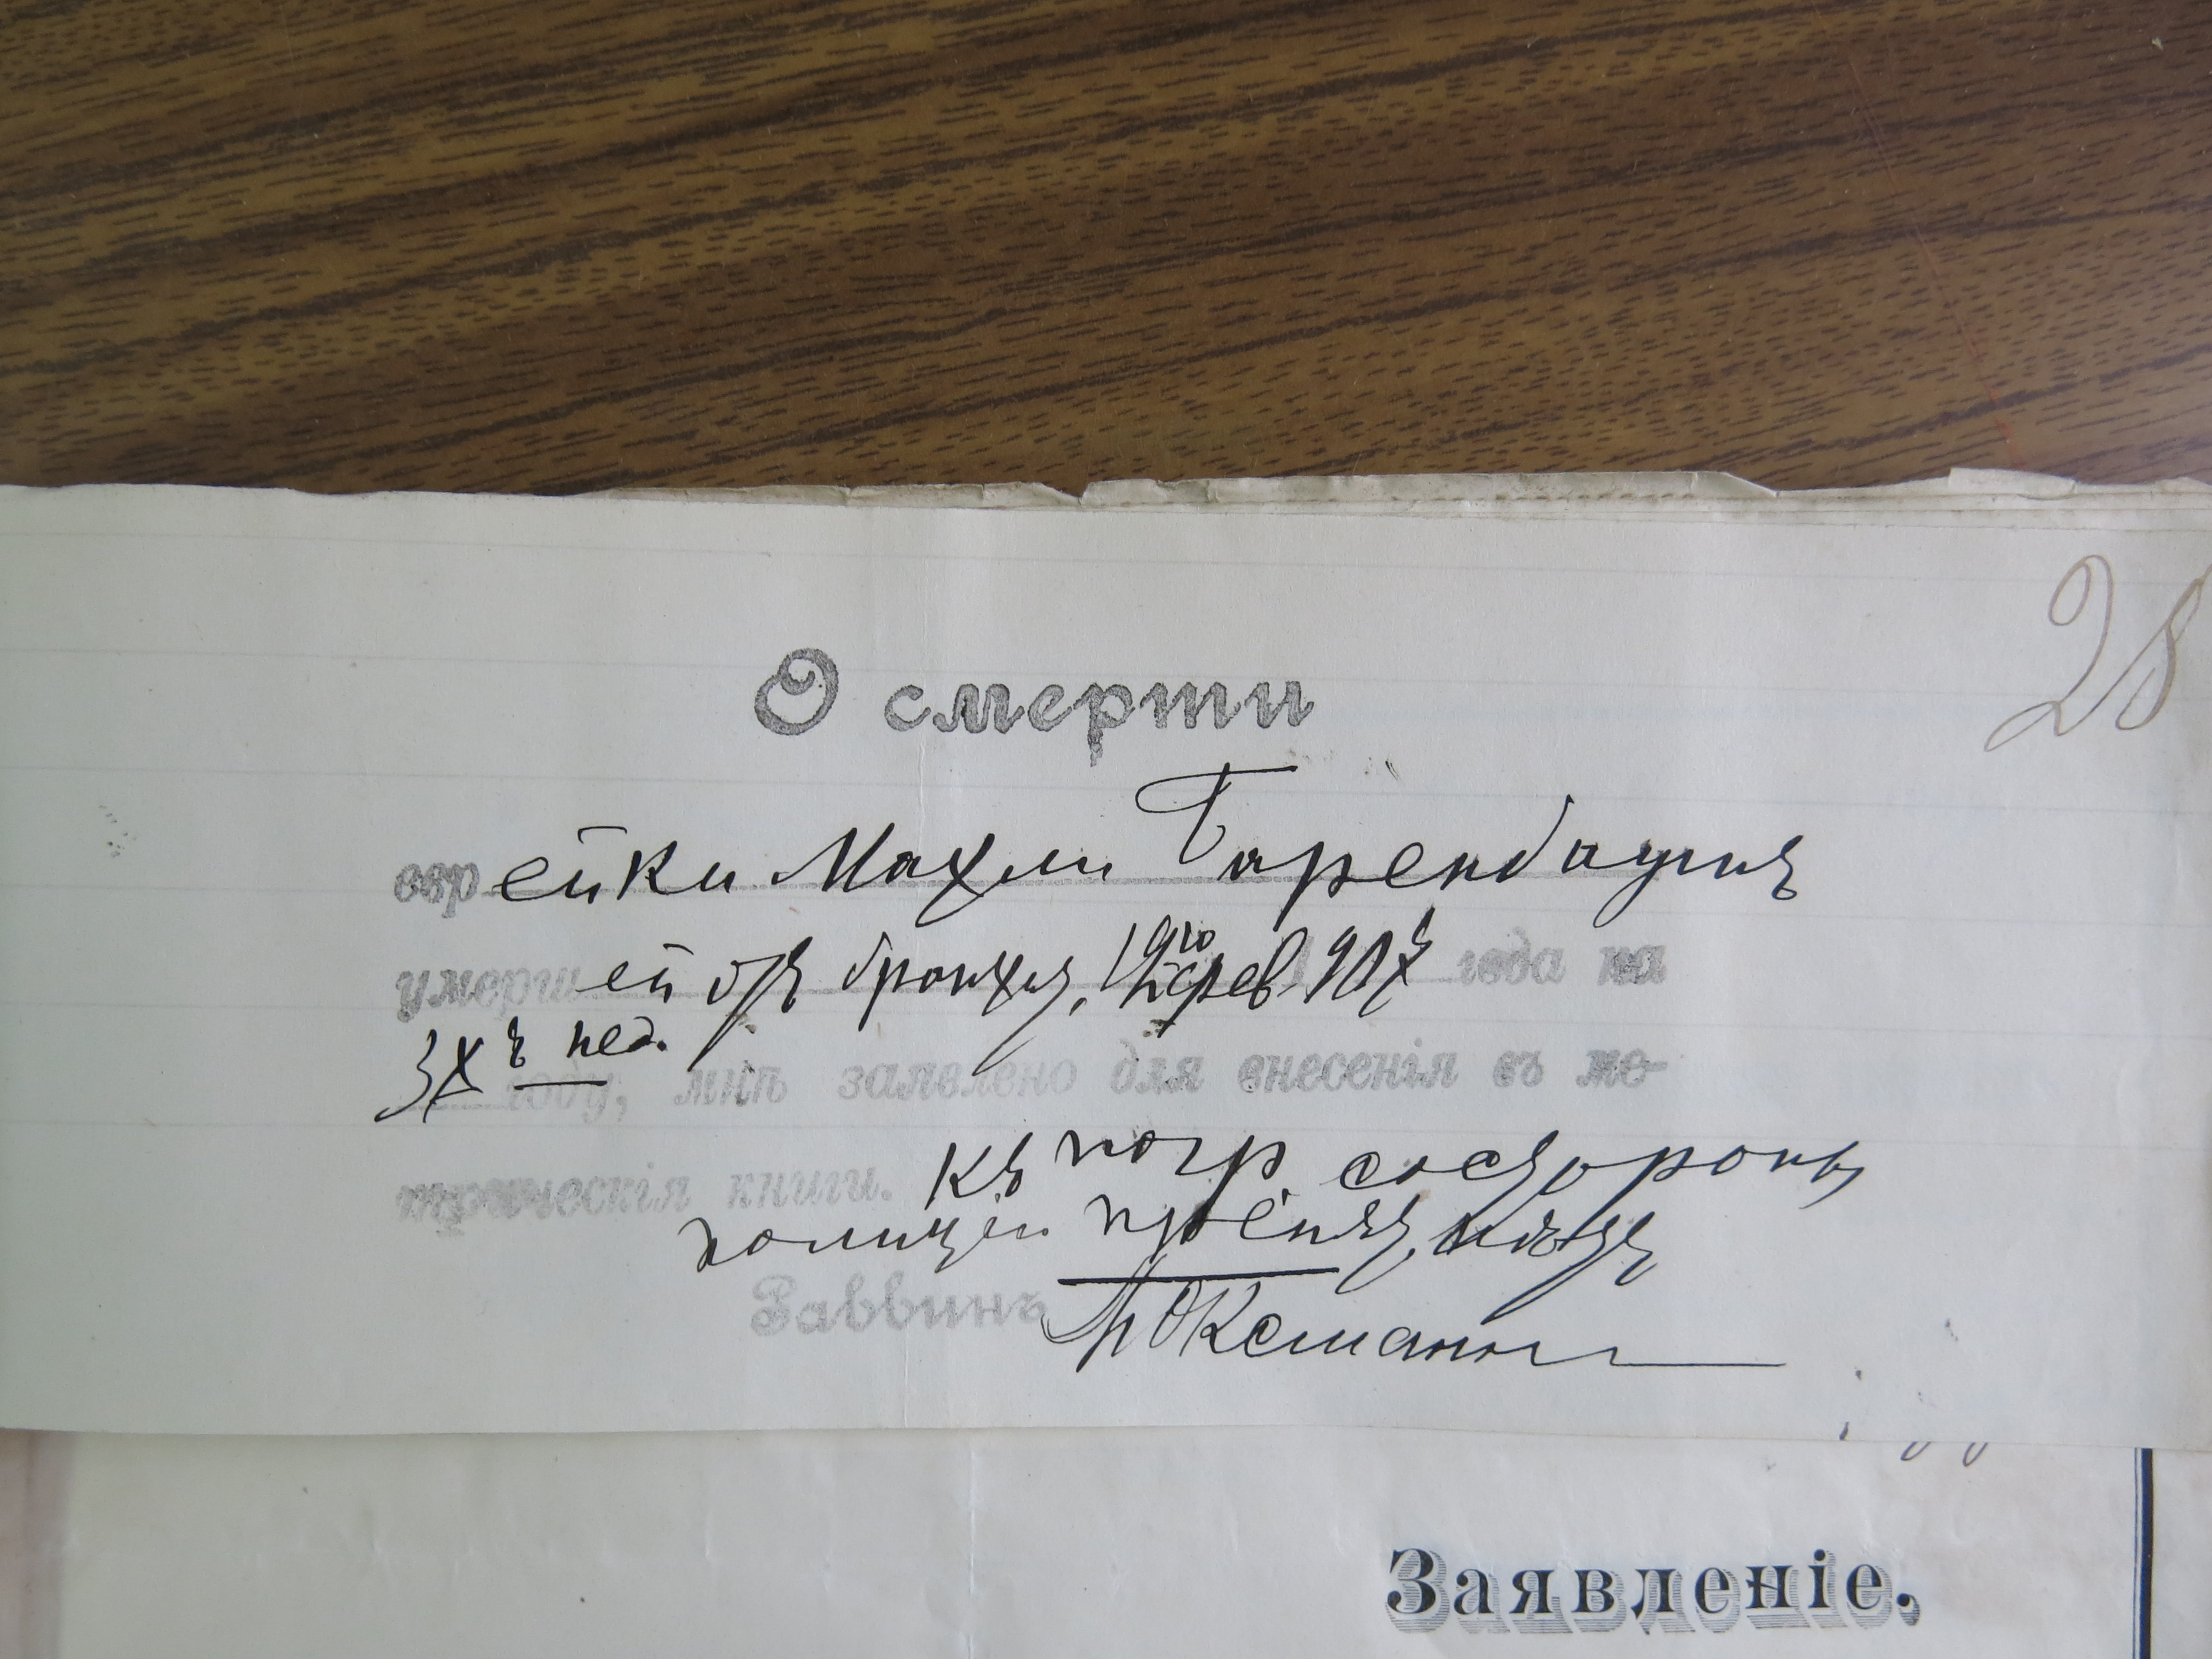 28
О смерти
еврейки Махли Баренбаумъ
умершей отъ бронхіт, 19го февр 917 года на
3хъ нед. году, мнѣ заявлено для внесенія въ ме-
трическія книги. Къ погр. со стороны
полиціи препят. нѣтъ
Раввинъ Оксманъ
Заявленіе.